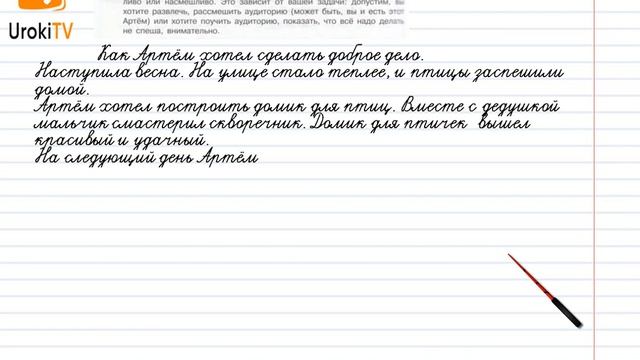 UrokiTV
ливо или насмешливо. Это зависит от вашей задачи: допустим, вы
хотите развлечь, рассмешить аудиторию (может быть, вы и есть этот
Артём) или хотите поучить аудиторию, показать, что всё надо делать
не спеша, внимательно.
Как Артём хотел сделать доброе дело.
Наступила весна. На улице стало теплее, и птицы заспешили
домой.
Артём хотел построить домик для птиц. Вместе с дедушкой
мальчик смастерил скворечник. Домик для птичек вышел
красивый и удачный.
На следующий день Артём